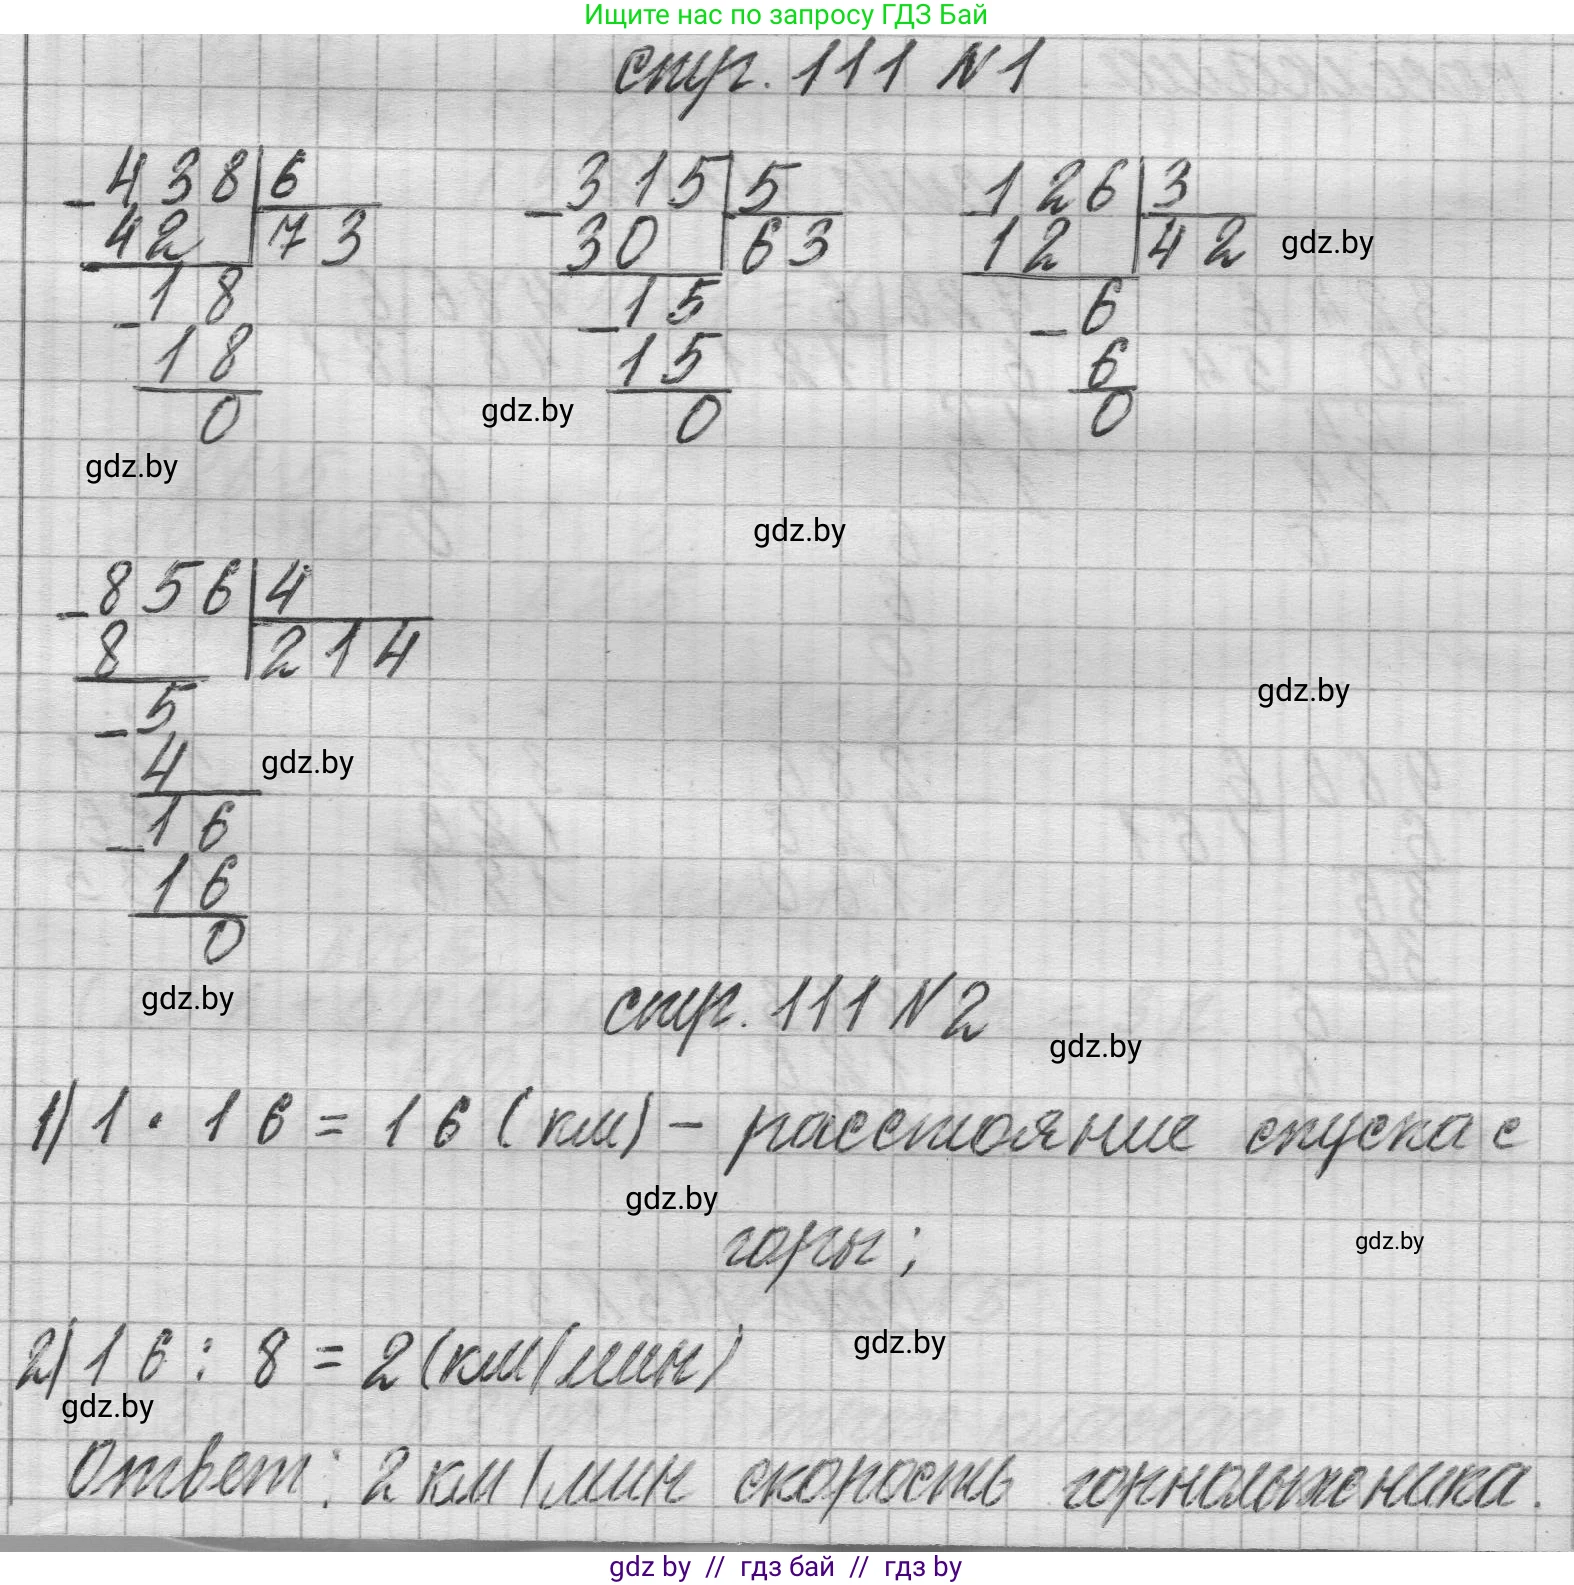 Ищите нас по запросу ГДЗ Бай
стр. 111 N1
438 6
42 73
18
18
0
315 5
30 63
15
15
0
126 3
12 42
6
6
0
gdz.by
gdz.by
gdz.by
gdz.by
856 4
8 214
5
4
16
16
0
gdz.by
gdz.by
gdz.by
стр. 111 N2
gdz.by
1) 1 · 16 = 16 (км) – расстояние спуска с
gdz.by
горы;
gdz.by
2) 16 : 8 = 2 (км/мин)
gdz.by
gdz.by
Ответ: 2 км/мин скорость горнолыжника.
gdz.by // гдз бай // гдз by